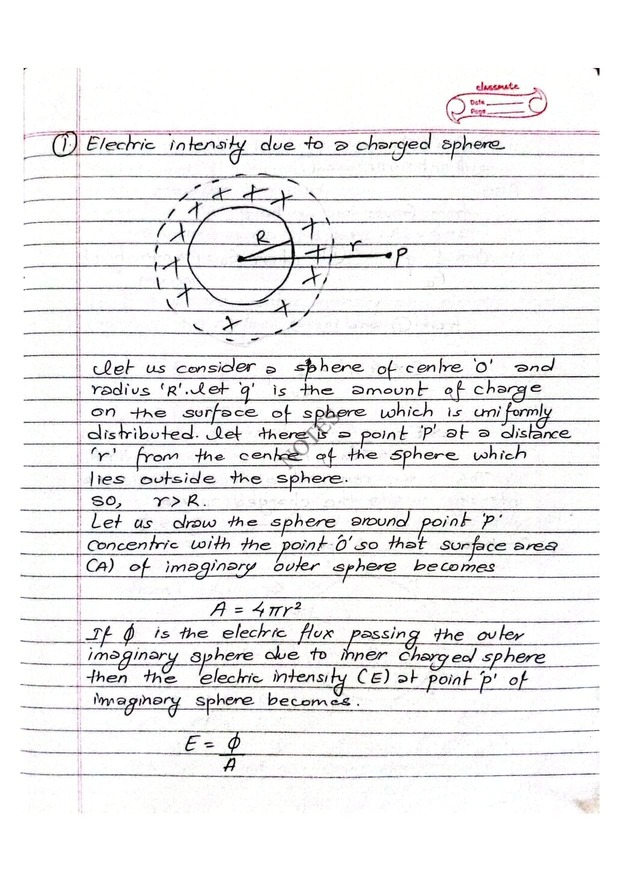 classmate
Date
Page
① Electric intensity due to a charged sphere
R
r
P
let us consider a sphere of centre 'O' and
radius 'R'. let 'q' is the amount of charge
on the surface of sphere which is uniformly
distributed. let there is a point 'P' at a distance
'r' from the centre of the sphere which
lies outside the sphere.
so, r > R.
Let us draw the sphere around point 'P'
concentric with the point 'O' so that surface area
(A) of imaginary outer sphere becomes
A = 4πr²
If ϕ is the electric flux passing the outer
imaginary sphere due to inner charged sphere
then the electric intensity (E) at point 'p' of
imaginary sphere becomes.
E = ϕ
A
NOTES